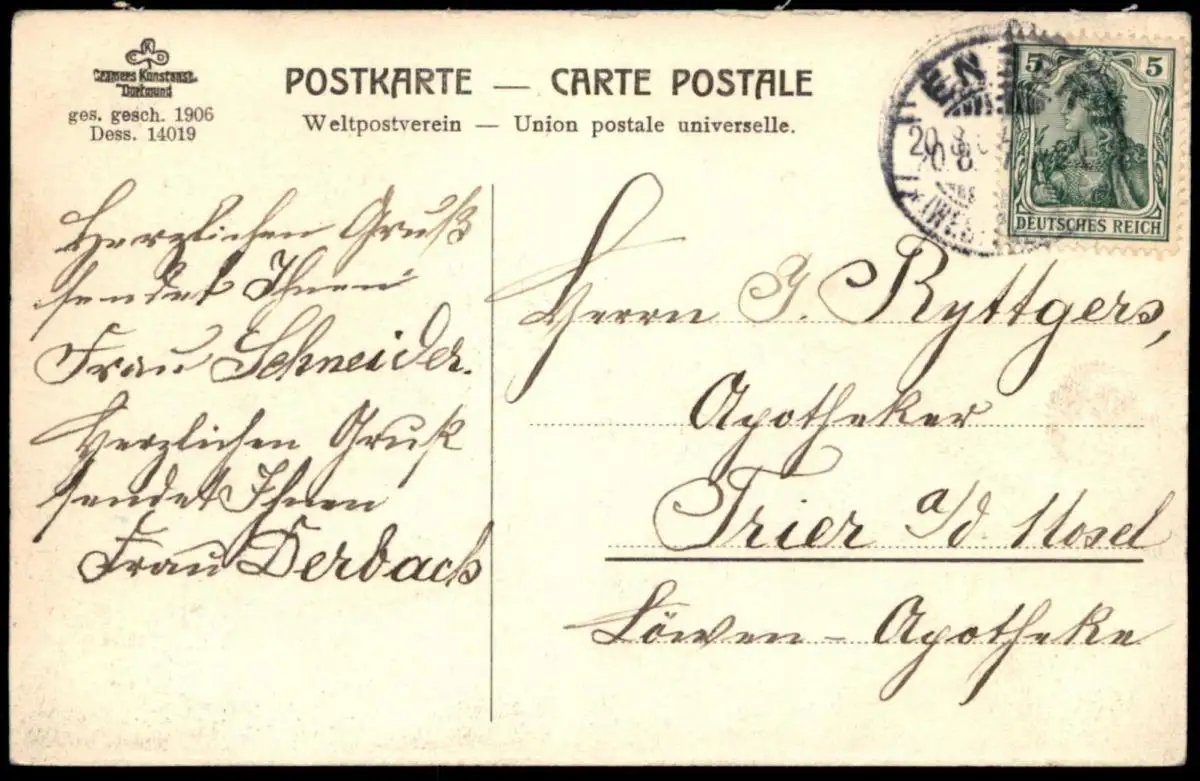 Cramers Kunstanst.
Dortmund
ges. gesch. 1906
Dess. 14019
POSTKARTE — CARTE POSTALE
Weltpostverein — Union postale universelle.
5 5
DEUTSCHES REICH
Herzlichen Gruß
sendet Ihnen
Frau Schneider.
Herzlichen Gruß
sendet Ihnen
Frau Derbach
Herrn J. Ryttgers,
Apotheker
Trier a/d. Mosel
Löwen - Apotheke